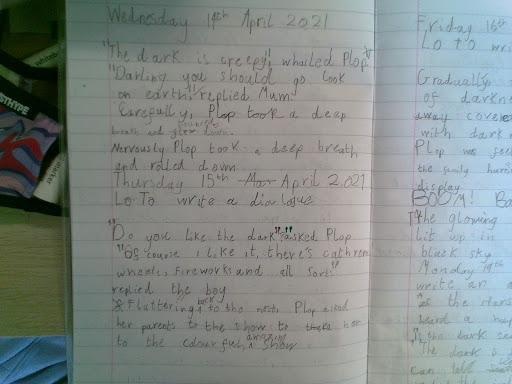 Wednesday 14th April 2021
"The dark is creepy", whailed Plop
"Darling you should go look
on earth," replied Mum.
Carefully, Plop took a deep
breath and
Nervously Plop took a deep breath
and rolled down.
Thursday 15th Mar April 2021
Lo: To write a dialogue
"Do you like the dark" asked Plop
"Of course I like it, there's cathren
wheels, fireworks and all sorts"
replied the boy
Fluttering back to the nest Plop
her parents to the show to her
to the colourful, amazing show.
Friday 16th
Lo to wri
Gradually
of darkne
away covere
with dark
Plop was
the family
display
BOOM! Ba
The glowing
lit up in
black sky
Monday 19th
write an
as the
heard a
the dark
The dark
can